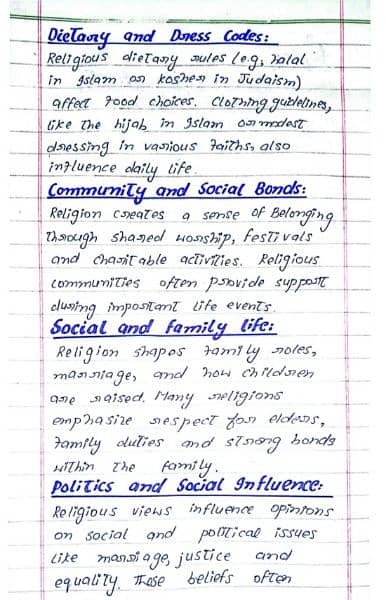 Dietary and Dress Codes:
Religious dietary rules (e.g, halal
in Islam or kosher in Judaism)
affect food choices. Clothing guidelines,
like the hijab in Islam or modest
dressing in various faiths, also
influence daily life.
Community and Social Bonds:
Religion creates a sense of Belonging
through shared worship, festivals
and charitable activities. Religious
communities often provide support
during important life events.
Social and family life:
Religion shapes family roles,
marriage, and how children
are raised. Many religions
emphasize respect for elders,
family duties and strong bonds
within the family.
Politics and Social Influence:
Religious views influence opinions
on social and political issues
like marriage, justice and
equality. These beliefs often